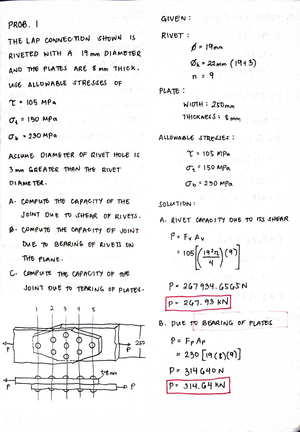 PROB. 1
THE LAP CONNECTION SHOWN IS
RIVETED WITH A 19 mm DIAMETER
AND THE PLATES ARE 8 mm THICK.
USE ALLOWABLE STRESSES OF
τ = 105 MPa
σt = 150 MPa
σb = 230 MPa
ASSUME DIAMETER OF RIVET HOLE IS
3 mm GREATER THAN THE RIVET
DIAMETER.
A. COMPUTE THE CAPACITY OF THE
JOINT DUE TO SHEAR OF RIVETS.
B. COMPUTE THE CAPACITY OF JOINT
DUE TO BEARING OF RIVETS ON
THE PLANE.
C. COMPUTE THE CAPACITY OF THE
JOINT DUE TO TEARING OF PLATES.
1 2 3 4 5
P
250
P
P
P
GIVEN:
RIVET:
Ø = 19mm
Øh = 22mm (19+3)
n = 9
PLATE:
WIDTH: 250mm
THICKNESS: 8mm
ALLOWABLE STRESSES:
τ = 105 MPa
σt = 150 MPa
σb = 230 MPa
SOLUTION:
A. RIVET CAPACITY DUE TO ITS SHEAR
P = Fv Av
= 105 [(19²π/4)(9)]
P = 267 934.6565 N
P = 267.93 kN
B. DUE TO BEARING OF PLATES
P = Fp Ap
= 230 [19(8)(9)]
P = 314640 N
P = 314.64 kN